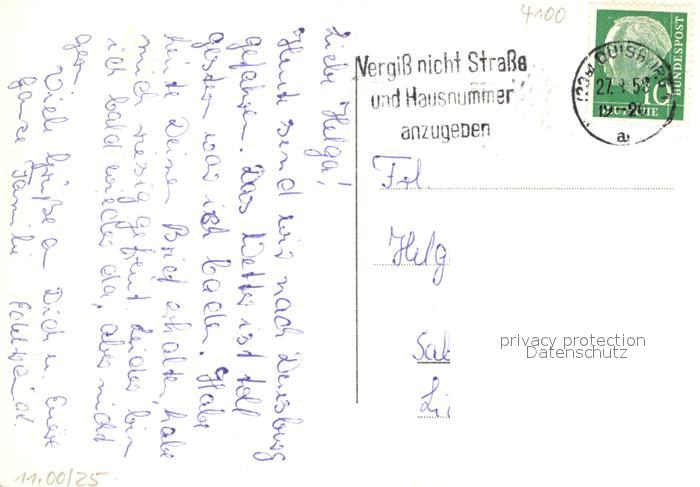 4100
Vergiß nicht Straße
und Hausnummer
anzugeben
DUISBURG
27. 58
19-20
a
10
BUNDESPOST
Frl.
Helg
Sab
Li
privacy protection
Datenschutz
Liebe Helga!
Heute sind wir nach Duisburg
gefahren. Das Wetter ist toll
gestern war ich baden. Habe
heute Deinen Brief erhalten, habe
mich riesig gefreut. Leider bin
ich bald wieder da, aber nicht
gern
Viele Grüße an Dich u. Eure
ganze Familie
11.00/25